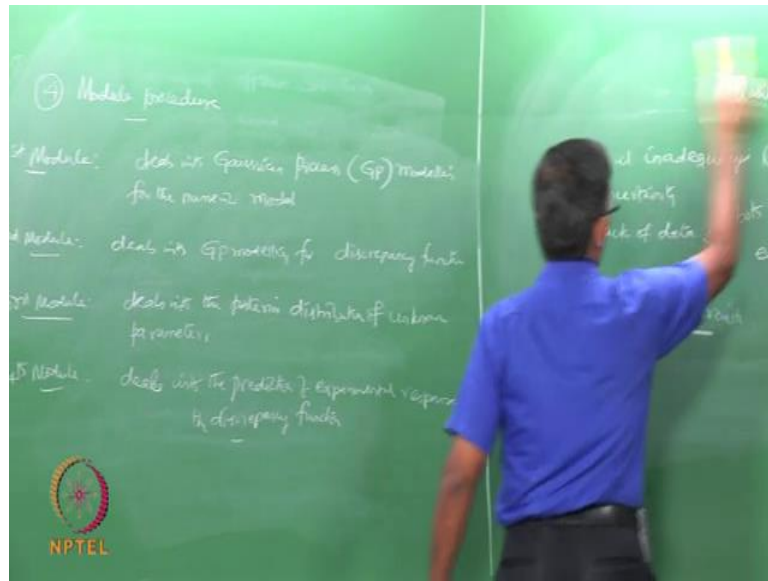 ④ Module procedure
st Module: deals with Gaussian process (GP) modelling
for the numerical model
nd Module: deals with GP modelling for discrepancy function
rd Module: deals with the posterior distribution of unknown
parameters
4th Module: deals with the prediction of experimental response
& discrepancy function
inadequacy (
lack of data
NPTEL